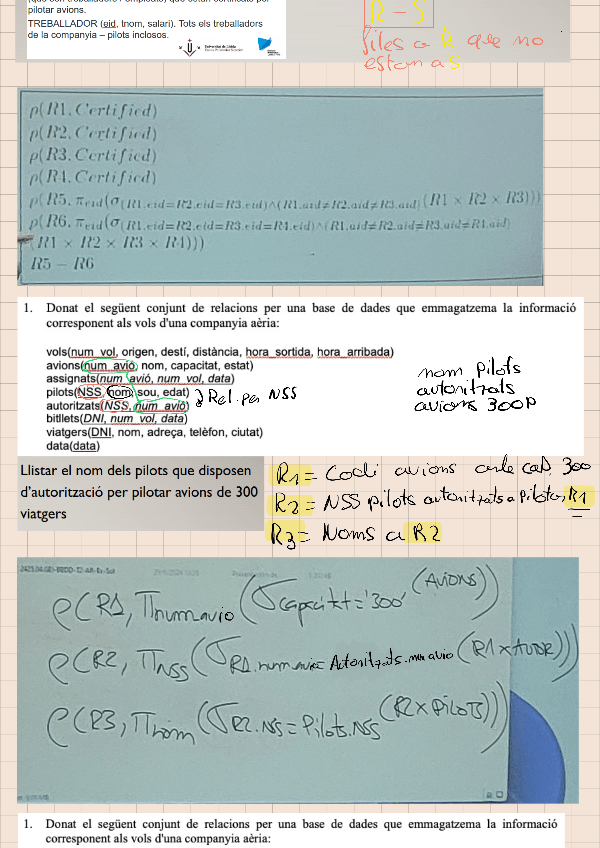 pilotar avions.
TREBALLADOR (eid, tnom, salari). Tots els treballadors
de la companyia – pilots inclosos.
Universitat de Lleida
R – S
files a R que no
estan a S
ρ(R1, Certified)
ρ(R2, Certified)
ρ(R3, Certified)
ρ(R4, Certified)
ρ(R5, π_eid(σ_(R1.eid=R2.eid=R3.eid)∧(R1.aid≠R2.aid≠R3.aid) (R1 × R2 × R3)))
ρ(R6, π_eid(σ_(R1.eid=R2.eid=R3.eid=R4.eid)∧(R1.aid≠R2.aid≠R3.aid≠R4.aid)
(R1 × R2 × R3 × R4)))
R5 − R6
1. Donat el següent conjunt de relacions per una base de dades que emmagatzema la informació
corresponent als vols d'una companyia aèria:
vols(num_vol, origen, destí, distància, hora_sortida, hora_arribada)
avions(num_avió, nom, capacitat, estat)
assignats(num_avió, num_vol, data)
pilots(NSS, nom, sou, edat)
autoritzats(NSS, num_avió)
bitllets(DNI, num_vol, data)
viatgers(DNI, nom, adreça, telèfon, ciutat)
data(data)
Rel. per NSS
nom pilots
autoritzats
avions 300p
Llistar el nom dels pilots que disposen
d'autorització per pilotar avions de 300
viatgers
R1 = Codi avions amb cap. 300
R2 = NSS pilots autoritzats a pilotar R1
R3 = Noms a R2
ρ(R1, Πnumavio(σcapacitat='300'(AVIONS)))
ρ(R2, ΠNSS(σR1.numavio=Autoritzats.numavio(R1×AUTOR)))
ρ(R3, Πnom(σR2.NSS=Pilots.NSS(R2×PILOTS)))
1. Donat el següent conjunt de relacions per una base de dades que emmagatzema la informació
corresponent als vols d'una companyia aèria: